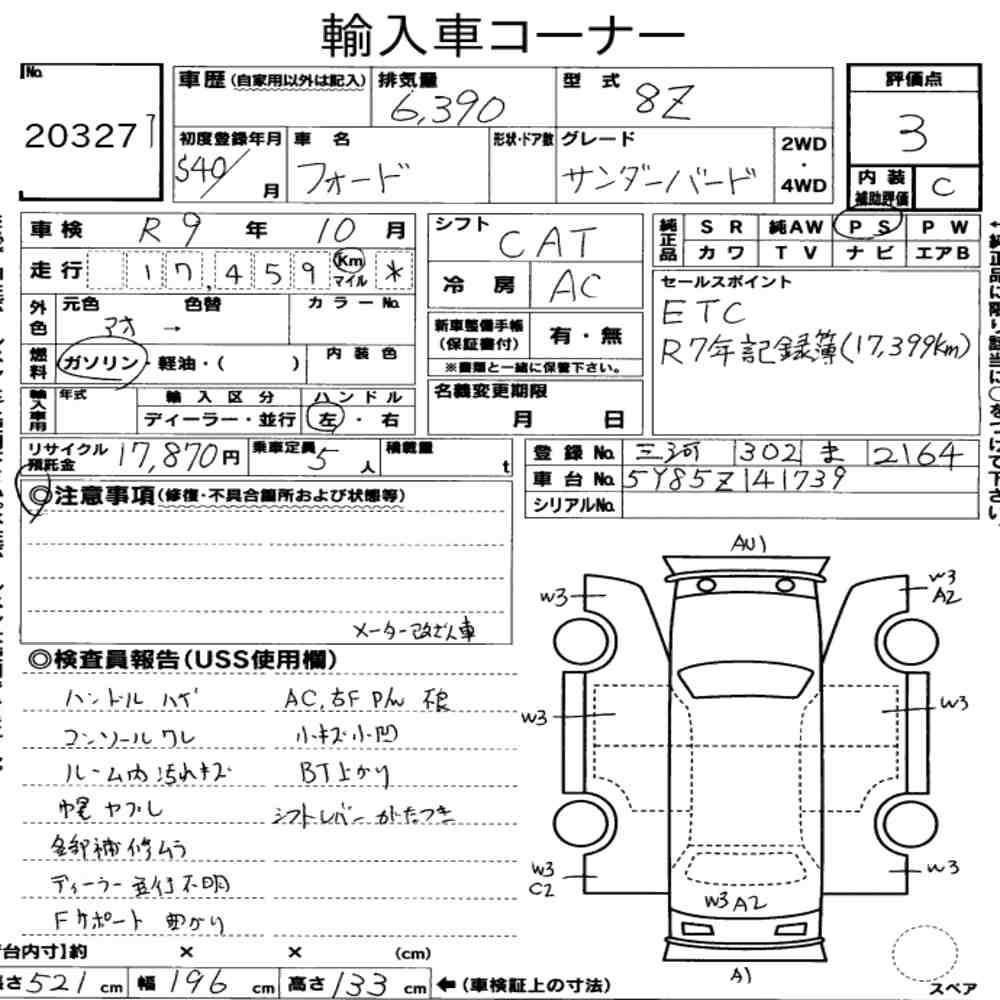 輸入車コーナー
No. 20327
車歴(自家用以外は記入) 排気量 6,390 型式 8Z 評価点 3
初度登録年月 S40/ 月 車名 フォード 形状・ドア数 グレード サンダーバード 2WD・4WD 内装補助評価 C
車検 R9年 10月
走行 17,459 Km マイル *
シフト CAT
冷房 AC
純正品 SR 純AW PS PW
カワ TV ナビ エアB
外色 元色 アオ → 色替 カラーNo.
燃料 ガソリン・軽油・( ) 内装色
新車整備手帳(保証書付) 有・無
※書類と一緒に保管下さい。
セールスポイント
ETC
R7年記録簿(17,399km)
輸入車用 年式 輸入区分 ハンドル
ディーラー・並行 左・右
名義変更期限
月 日
リサイクル預託金 17,870円 乗車定員 5人 積載量 t
登録No. 三河 302 ま 2164
車台No. 5Y85Z141739
シリアルNo.
◎注意事項(修復・不具合箇所および状態等)
メーター改ざん車
◎検査員報告(USS使用欄)
ハンドル ハゲ AC,古F P/W 不良
コンソール ワレ 小キズ小凹
ルーム内 汚れキズ BT上がり
幌 ヤブレ シフトレバー ガタつき
各部補修ムラ
ディーラー並行不明
Fサポート 曲がり
台内寸】約 × × (cm)
長さ 521 cm 幅 196 cm 高さ 133 cm ←(車検証上の寸法)
AU1
W3
W3
A2
W3
W3
W3
C2
W3
W3A2
A1
スペア